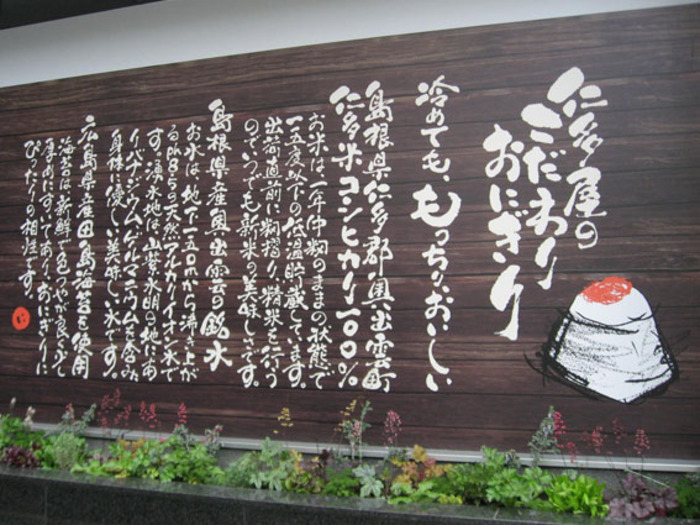 仁多屋の
こだわり
おにぎり
冷めても、もっちりおいしい
島根県仁多郡奥出雲町
仁多米コシヒカリ一〇〇％
お米は一年中籾のままの状態で
一五度以下の低温貯蔵しています。
出荷直前に籾摺り、精米を行う
のでいつでも新米の美味しさです。
島根県産奥出雲の銘水
お水は、地下一五〇mから沸き上が
るph8.5の天然アルカリイオン水で
す。湧水地は、山紫水明の地にあ
りバナジウム、ゲルマニウムを含み
身体に優しい美味しい水です。
広島県産田島海苔を使用
海苔は新鮮で色つやが良く全て
厚めにすいてあり、おにぎりに
ぴったりの相性です。